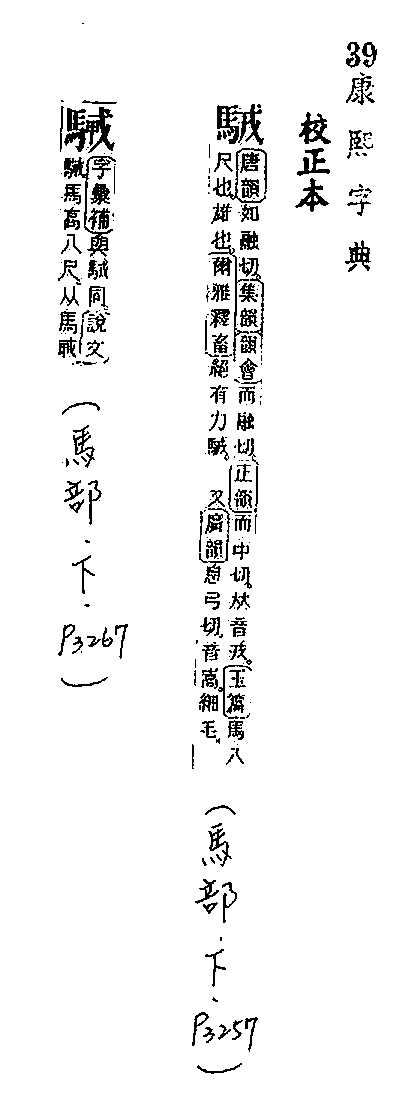 39康熙字典
校正本
駥
唐韻如融切集韻韻會而融切正韻而中切𠀤音戎玉篇馬八
尺也雄也爾雅釋畜絕有力駥 又廣韻息弓切音嵩細毛
(馬部.下.P3257)
字彙補與駥同說文
馬高八尺从馬戎
(馬部.下.P3267)